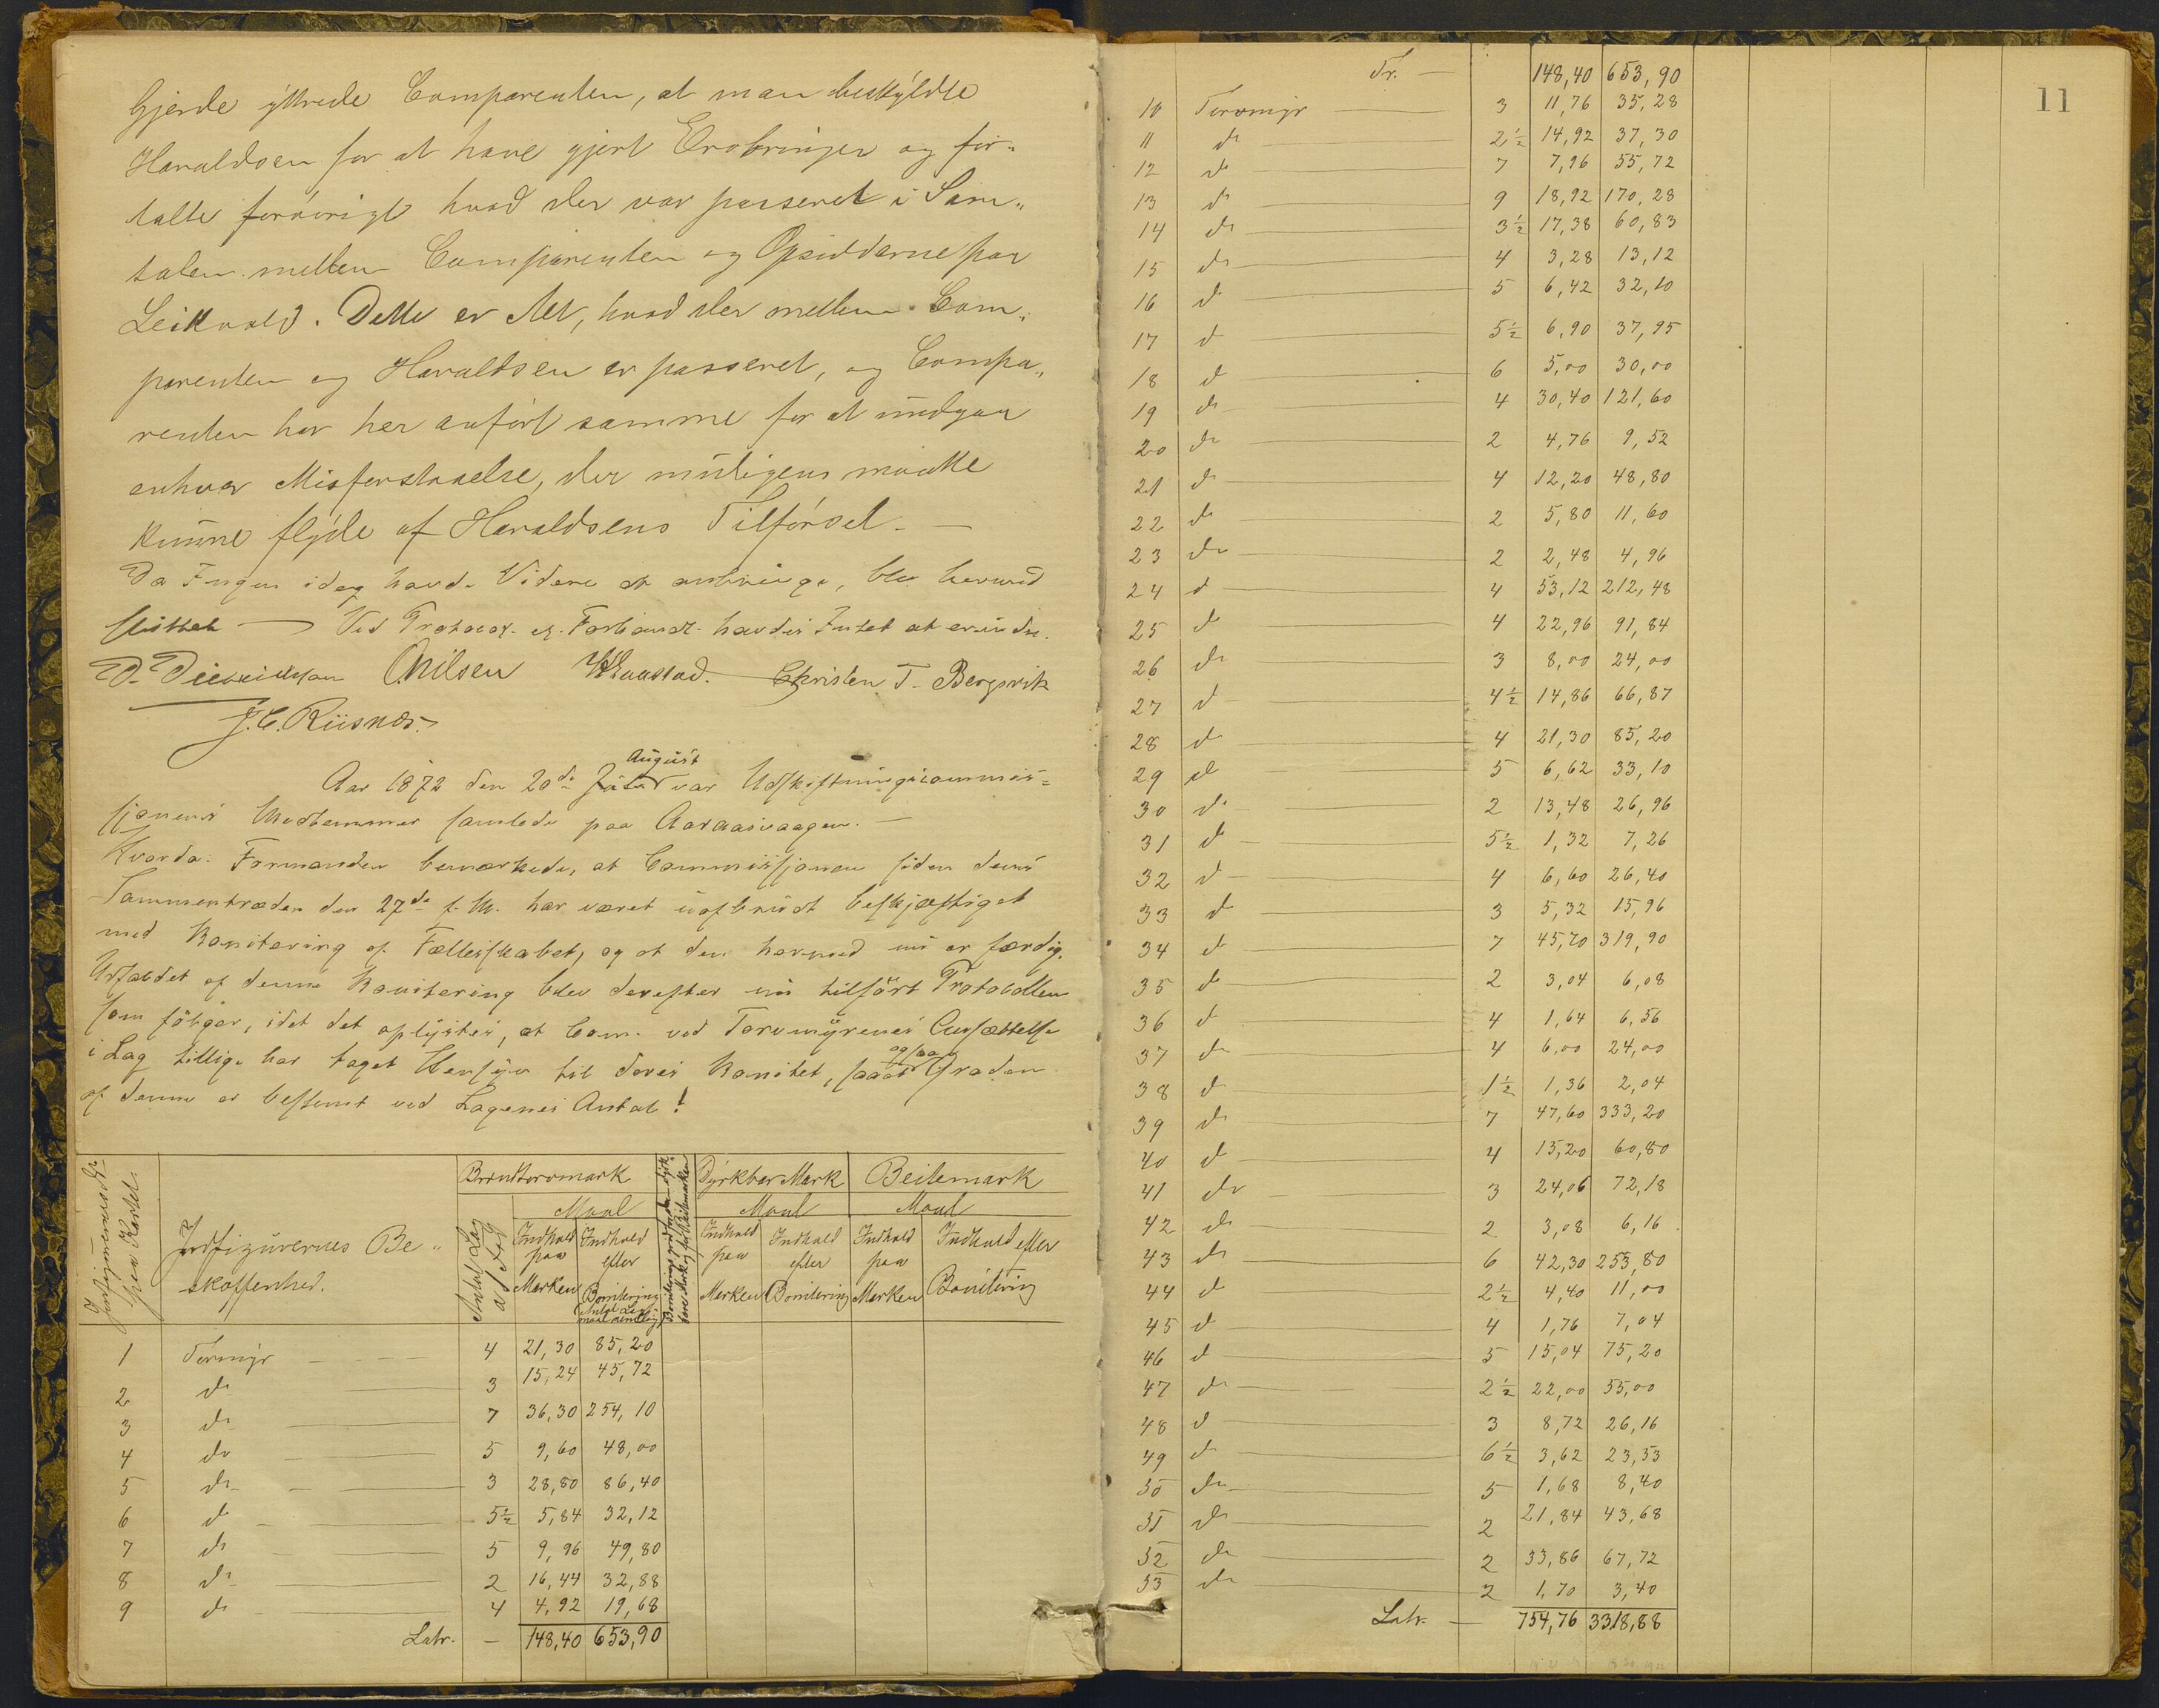 Gjerde yttrede Comparenten, at man beskyldte
Haraldsen for at have gjort Erobringer og for„
talte forövrigt hvad der var passeret i Sam„
talen mellem Comparenten og Opsidderne paa
Leikvold. Dette er Alt, hvad der mellem Com„
parenten og Haraldsen er passeret, og Compa„
renten har her anført samme for at undgaa
enhver Misforstaaelse, der muligens maatte
kunne flyde af Haraldsens Tilførsel. —
Da Ingen idag havde Videre at anbringe, blev hermed
sluttet — Ved Protocol. og Forhandl. havdes Intet at erindre.
D. O. Nilsen Christen T. Bergsvik
J. C. Riisnæs.
August
Aar 1872 den 20de var Udskiftningscommis=
sjonens Medlemmer samlede paa Aaraasvaagen. —
Hvorda: Formanden bemærkede, at Commissjonen siden dens
Sammentræden den 27de f. M. har været uafbrudt beskjæftiget
med Bonitering af Fællesskabet, og at den hermed nu er færdig.
Udfaldet af denne Bonitering blev derefter nu tilført Protocollen
som følger, idet det oplystes, at Com. ved Torvmyrenes Ansættelse
i Lag tillige har taget Hensyn til deres Bonitet, ogsaa Graden
af denne er bestemt ved Lagenes Antal!
Jordfigurernes Be„
skaffenhed.
Antal Lag
Brændtorvmark
Maal
Indhold paa Marken
Indhold efter Bonitering
Dyrkbar Mark
Maal
Indhold paa Marken
Indhold efter Bonitering
Beitemark
Maal
Indhold paa Marken
Indhold efter Bonitering
1 Torvmyr 4 21,30 85,20
2 do 3 15,24 45,72
3 do 7 36,30 254,10
4 do 5 9,60 48,00
5 do 3 28,80 86,40
6 do 5½ 5,84 32,12
7 do 5 9,96 49,80
8 do 2 16,44 32,88
9 do 4 4,92 19,68
Latr. — 148,40 653,90
11
Tr. — 148,40 653,90
10 Torvmyr 3 11,76 35,28
11 do 2½ 14,92 37,30
12 do 7 7,96 55,72
13 do 9 18,92 170,28
14 do 3½ 17,38 60,83
15 do 4 3,28 13,12
16 do 5 6,42 32,10
17 do 5½ 6,90 37,95
18 do 6 5,00 30,00
19 do 4 30,40 121,60
20 do 2 4,76 9,52
21 do 4 12,20 48,80
22 do 2 5,80 11,60
23 do 2 2,48 4,96
24 do 4 53,12 212,48
25 do 4 22,96 91,84
26 do 3 8,00 24,00
27 do 4½ 14,86 66,87
28 do 4 21,30 85,20
29 do 5 6,62 33,10
30 do 2 13,48 26,96
31 do 5½ 1,32 7,26
32 do 4 6,60 26,40
33 do 3 5,32 15,96
34 do 7 45,70 319,90
35 do 2 3,04 6,08
36 do 4 1,64 6,56
37 do 4 6,00 24,00
38 do 1½ 1,36 2,04
39 do 7 47,60 333,20
40 do 4 15,20 60,80
41 do 3 24,06 72,18
42 do 2 3,08 6,16
43 do 6 42,30 253,80
44 do 2½ 4,40 11,00
45 do 4 1,76 7,04
46 do 5 15,04 75,20
47 do 2½ 22,00 55,00
48 do 3 8,72 26,16
49 do 6½ 3,62 23,53
50 do 5 1,68 8,40
51 do 2 21,84 43,68
52 do 2 33,86 67,72
53 do 2 1,70 3,40
Latr. — 754,76 3318,88